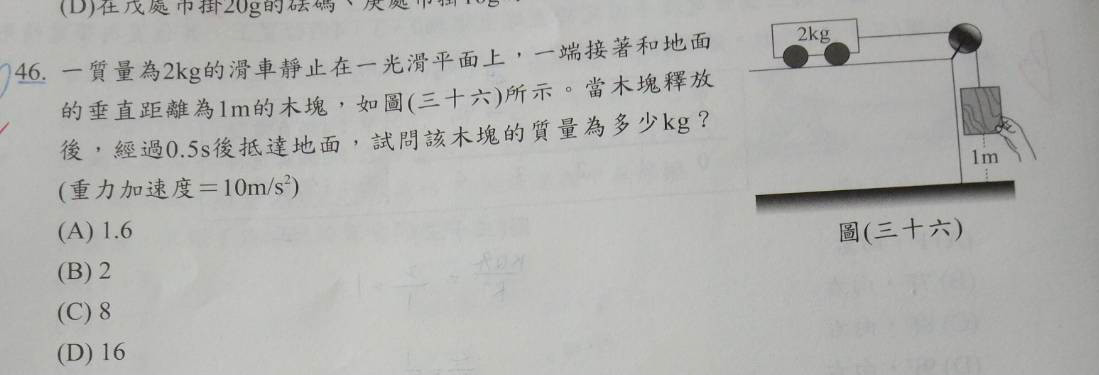 (D)在戊處吊掛20g的砝碼、庚處吊掛10g
46. 一質量為2kg的滑車靜止在一光滑平面上,一端接著和地面
的垂直距離為1m的木塊,如圖(三十六)所示。當木塊釋放
後,經過0.5s後抵達地面,試問該木塊的質量為多少kg?
(重力加速度=10m/s²)
(A) 1.6
(B) 2
(C) 8
(D) 16
2kg
1m
圖(三十六)